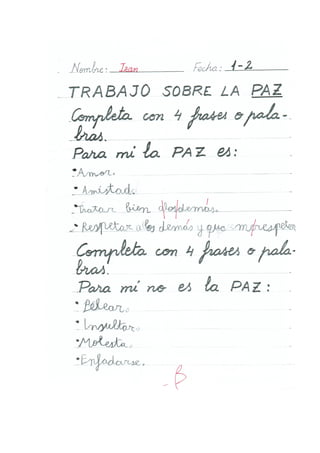 Nombre: Izan Fecha: 1-2
TRABAJO SOBRE LA PAZ
Completa con 4 frases o pala-
bras.
Para mi la PAZ es:
• Amor.
• Amistad.
• Tratar bien a los demás.
• Respetar a los demás y que me respeten
Completa con 4 frases o pala-
bras.
Para mi no es la PAZ:
• Pelear.
• Insultar.
• Molesta.
• Enfadarse.
B